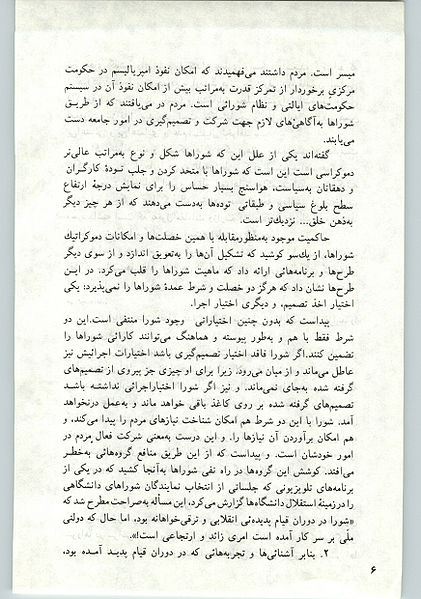 میسر است. مردم داشتند می‌فهمیدند که امکان نفوذ امپریالیسم در حکومت
مرکزی برخوردار از تمرکز قدرت به‌مراتب بیش از امکان نفوذ آن در سیستم
حکومت‌های ایالتی و نظام شورائی است. مردم در می‌یافتند که از طریق
شوراها به‌آگاهی‌های لازم جهت شرکت و تصمیم‌گیری در امور جامعه دست
می‌یابند.
گفته‌اند یکی از علل این که شوراها شکل و نوع به‌مراتب عالی‌تر
دموکراسی است این است که شوراها با متحد کردن و جلب تودهٔ کارگران
و دهقانان به‌سیاست، هواسنج بسیار حساس را برای نمایش درجهٔ ارتفاع
سطح بلوغ سیاسی و طبقاتی توده‌ها به‌دست می‌دهند که از هر چیز دیگر
به‌ذهن خلق... نزدیك‌تر است.
حاکمیت موجود به‌منظورمقابله با همین خصلت‌ها و امکانات دموکراتیك
شوراها، از یك‌سو کوشید که تشکیل آن‌ها را به‌تعویق اندازد و از سوی دیگر
طرح‌ها و برنامه‌هائی ارائه داد که ماهیت شوراها را قلب می‌کرد. در این
طرح‌ها نشان داد که هرگز دو خصلت و شرط عمدهٔ شوراها را نمی‌پذیرد: یکی
اختیار اخذ تصمیم، و دیگری اختیار اجرا.
پیداست که بدون چنین اختیاراتی وجود شورا منتفی است.این دو
شرط فقط با هم و به‌طور پیوسته و هماهنگ می‌توانند کارائی شوراها را
تضمین کنند.اگر شورا فاقد اختیار تصمیم‌گیری باشد اختیارات اجرائیش نیز
عاطل می‌ماند و از میان می‌رود، زیرا برای او چیزی جز پیروی از تصمیم‌های
گرفته شده به‌جای نمی‌ماند. و نیز اگر شورا اختیاراجرائی نداشته باشد
تصمیم‌های گرفته شده بر روی کاغذ باقی خواهد ماند و به‌عمل درنخواهد
آمد. شورا با این دو شرط هم امکان شناخت نیازهای مردم را پیدا می‌کند، و
هم امکان برآوردن آن نیازها را. و این درست به‌معنی شرکت فعال مردم در
امور خودشان است. و پیداست که از این طریق منافع گروه‌هائی به‌خطر
می‌افتد. کوشش این گروه‌ها در راه نفی شوراها به‌آنجا کشید که در یکی از
برنامه‌های تلویزیونی که جلساتی از انتخاب نمایندگان شوراهای دانشگاهی
را درزمینهٔ استقلال دانشگاه‌ها گزارش می‌کرد، این مسأله به‌صراحت مطرح شد که
«شورا در دوران قیام پدیده‌ئی انقلابی و ترقی‌خواهانه بود، اما حال که دولتی
ملّی بر سر کار آمده است امری زائد و ارتجاعی است!».
۲. بنابر آشنائی‌ها و تجربه‌هائی که در دوران قیام پدید آمده بود،
۶